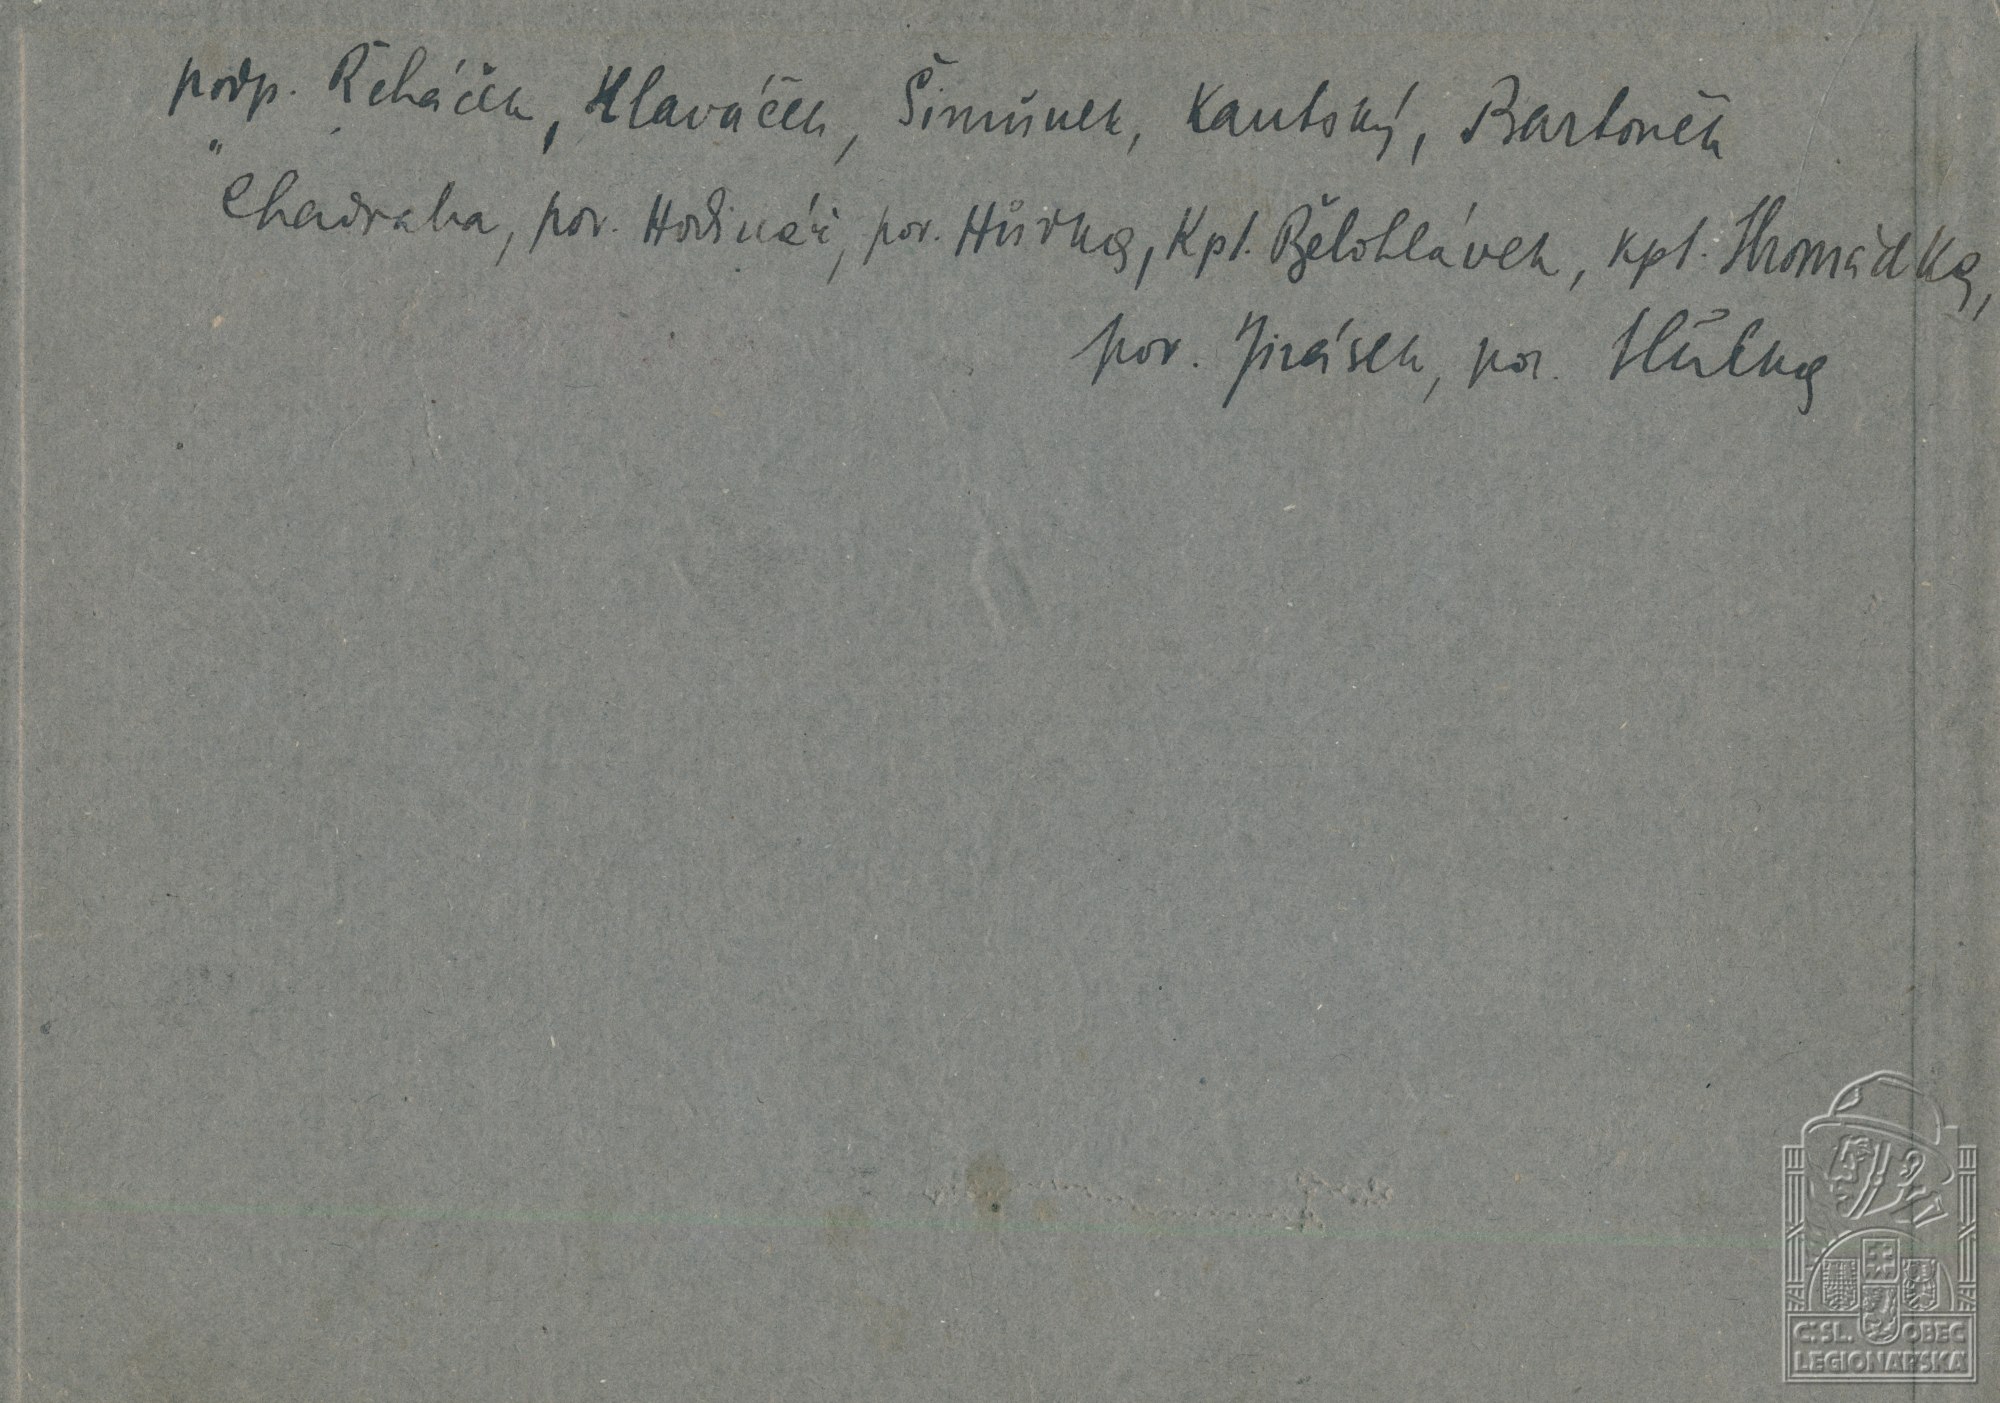 podp. Řeháček, Hlaváček, Šimůnek, Kautský, Bartoněk
" Chadraba, por. Hodinář, por. Hůrka, Kpt. Bělohlávek, kpt. Hromádka,
por. Jirásek, por. Hůlka
ČSL. OBEC
LEGIONÁŘSKÁ